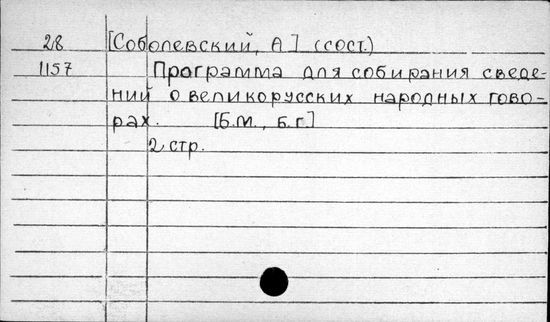 28 [Соболевский, А] (сост.)
1157 Программа для собирания сведе-
ний о великорусских народных гово-
рах. [Б.м., б.г.]
2 стр.